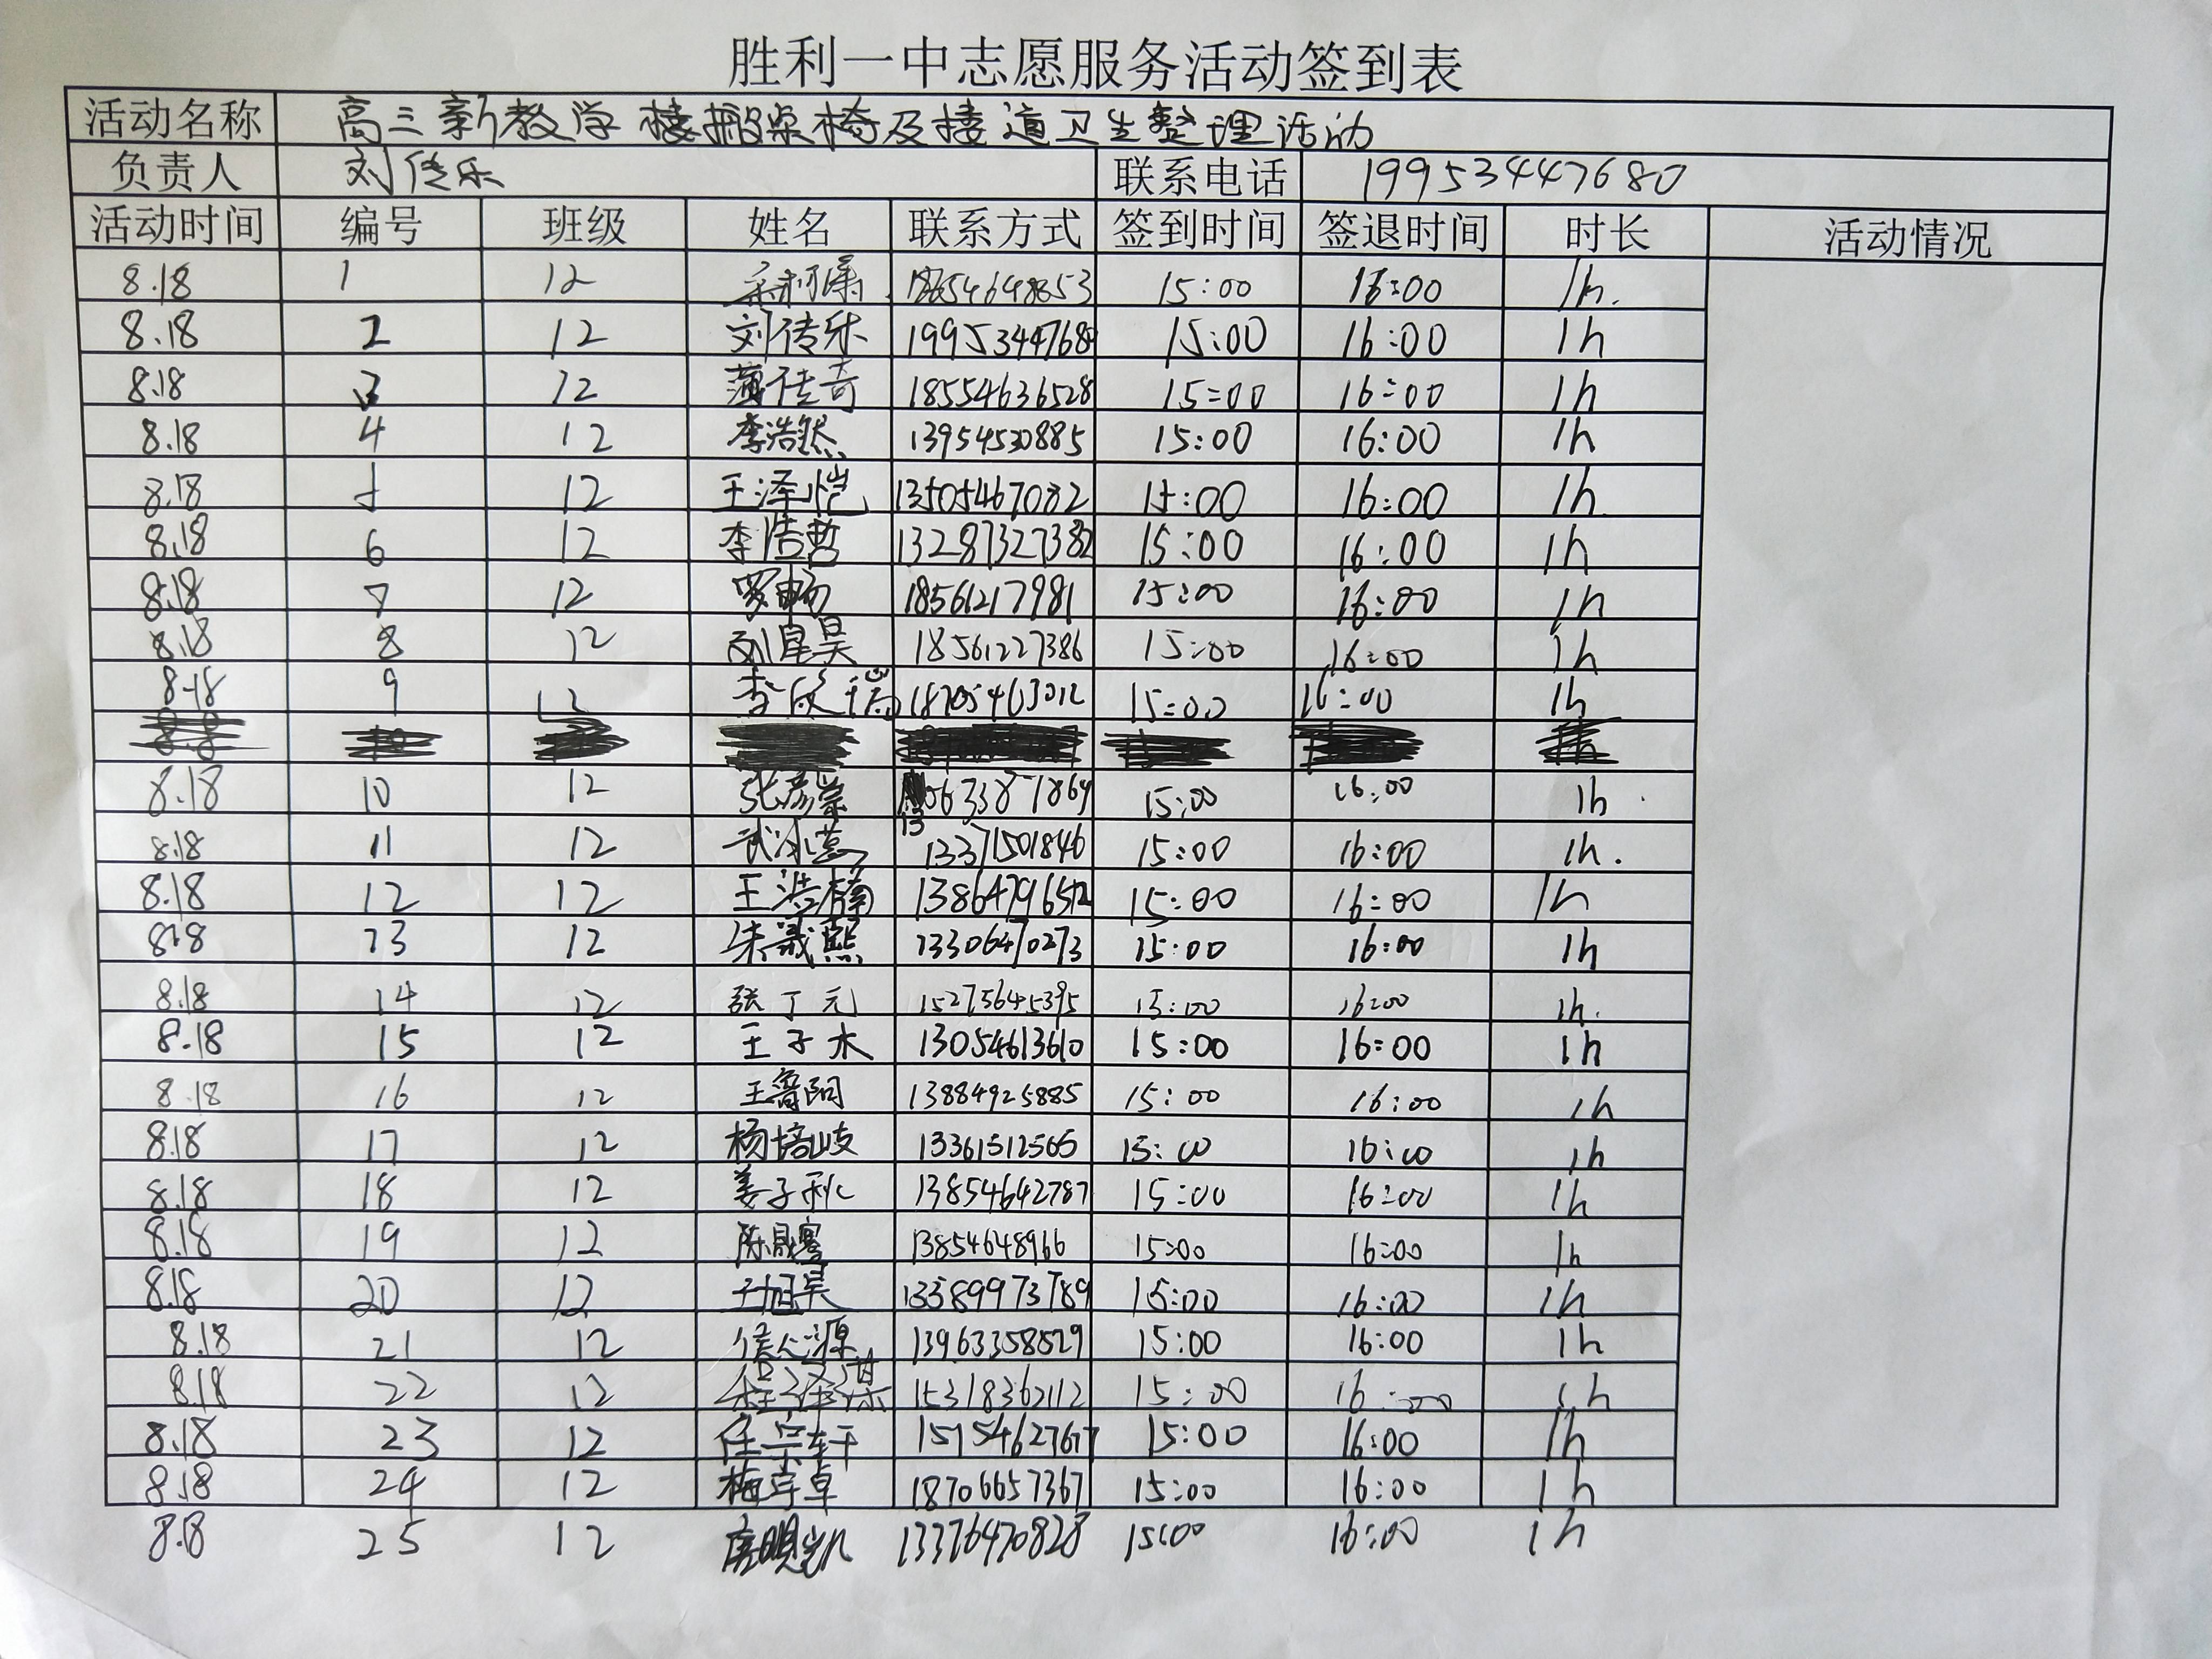 胜利一中志愿服务活动签到表
活动名称 高三新教学楼搬桌椅及楼道卫生整理活动
负责人 刘传乐 联系电话 19953447680
活动时间 编号 班级 姓名 联系方式 签到时间 签退时间 时长 活动情况
8.18 1 12 18654648853 15:00 16:00 1h.
8.18 2 12 刘传乐 19953447680 15:00 16:00 1h
8.18 3 12 薄传奇 18554636528 15:00 16:00 1h
8.18 4 12 李浩然 13954530885 15:00 16:00 1h
8.18 5 12 王泽恺 13505467082 15:00 16:00 1h
8.18 6 12 李浩哲 13287327382 15:00 16:00 1h
8.18 7 12 罗畅 18561217981 15:00 16:00 1h
8.18 8 12 刘星昊 18561227386 15:00 16:00 1h
8.18 9 12 李欣德 18705463012 15:00 16:00 1h
8.18 10 12 张彦崇 15:00 16:00 1h
8.18 11 12 13371501846 15:00 16:00 1h.
8.18 12 12 王浩楠 13864796512 15:00 16:00 1h
8.18 13 12 朱晟熙 13306470273 15:00 16:00 1h
8.18 14 12 张丁元 15275645395 15:00 16:00 1h.
8.18 15 12 王子木 13054613610 15:00 16:00 1h
8.18 16 12 王鲁阳 13884925885 15:00 16:00 1h
8.18 17 12 杨培岐 13361512565 15:00 16:00 1h
8.18 18 12 姜子秋 13854642787 15:00 16:00 1h
8.18 19 12 13854648966 15:00 16:00 1h
8.18 20 12 王旭昊 13589973789 15:00 16:00 1h
8.18 21 12 信心源 13963358529 15:00 16:00 1h
8.18 22 12 程泽琪 15318362112 15:00 16:00 1h
8.18 23 12 任宗轩 15154627617 15:00 16:00 1h
8.18 24 12 梅学卓 18706657367 15:00 16:00 1h
8.18 25 12 13376470828 15:00 16:00 1h